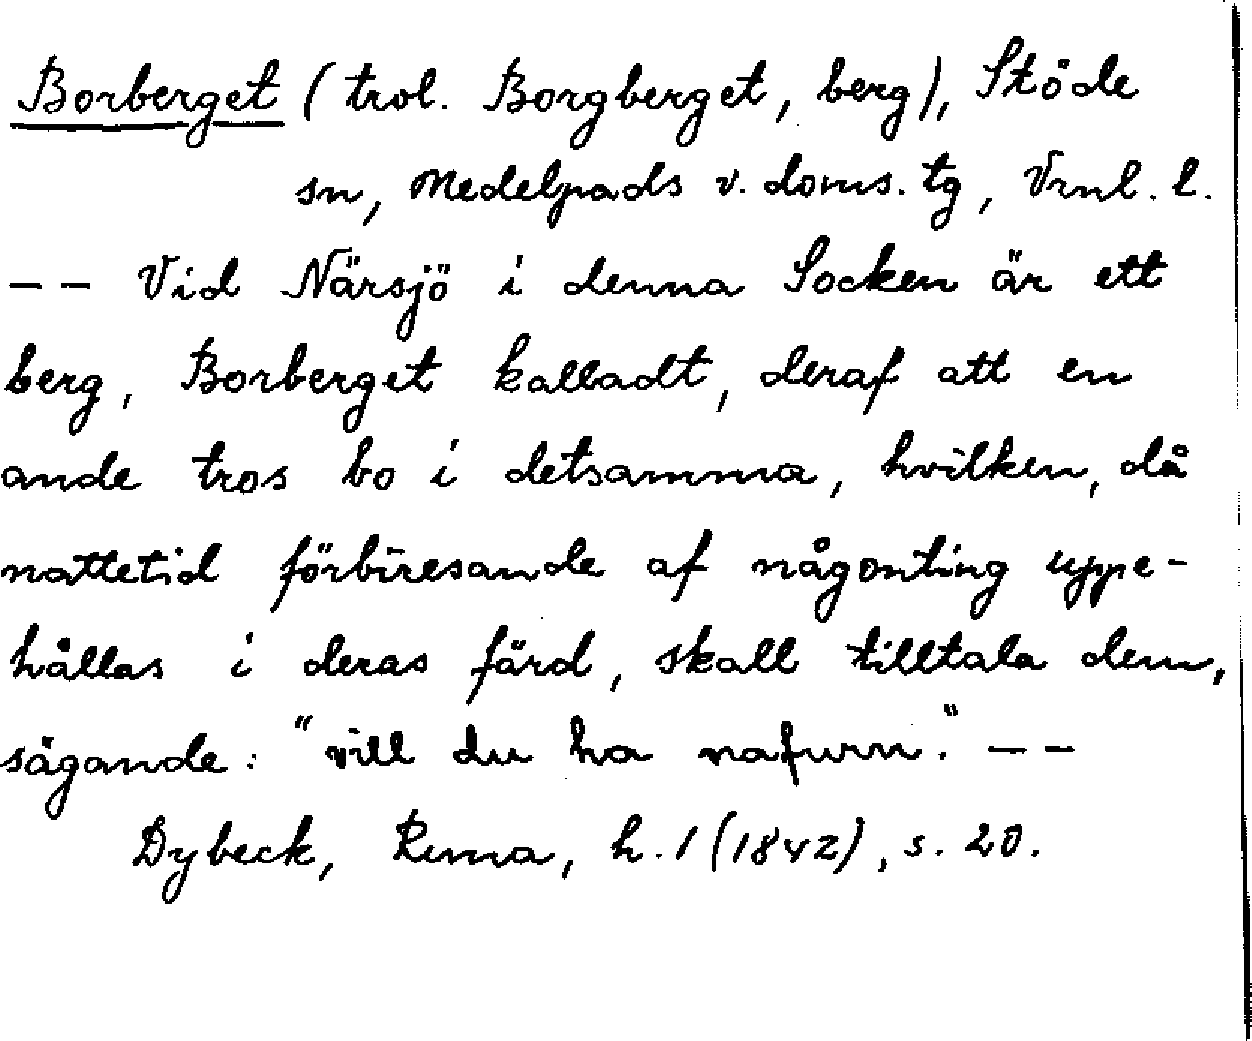 Borberget (trol. Borgberget, berg), Stöde
sn, Medelpads v. doms. tg, Vrnl. l.
-- Vid Närsjö i denna Socken är ett
berg, Borberget kalladt, deraf att en
ande tros bo i detsamma, hvilken, då
nattetid förbiresande af någonting uppe-
hållas i deras färd, skall tilltala dem,
sägande: "vill du ha nafurn." --
Dybeck, Runa, h. 1 (1842), s. 20.